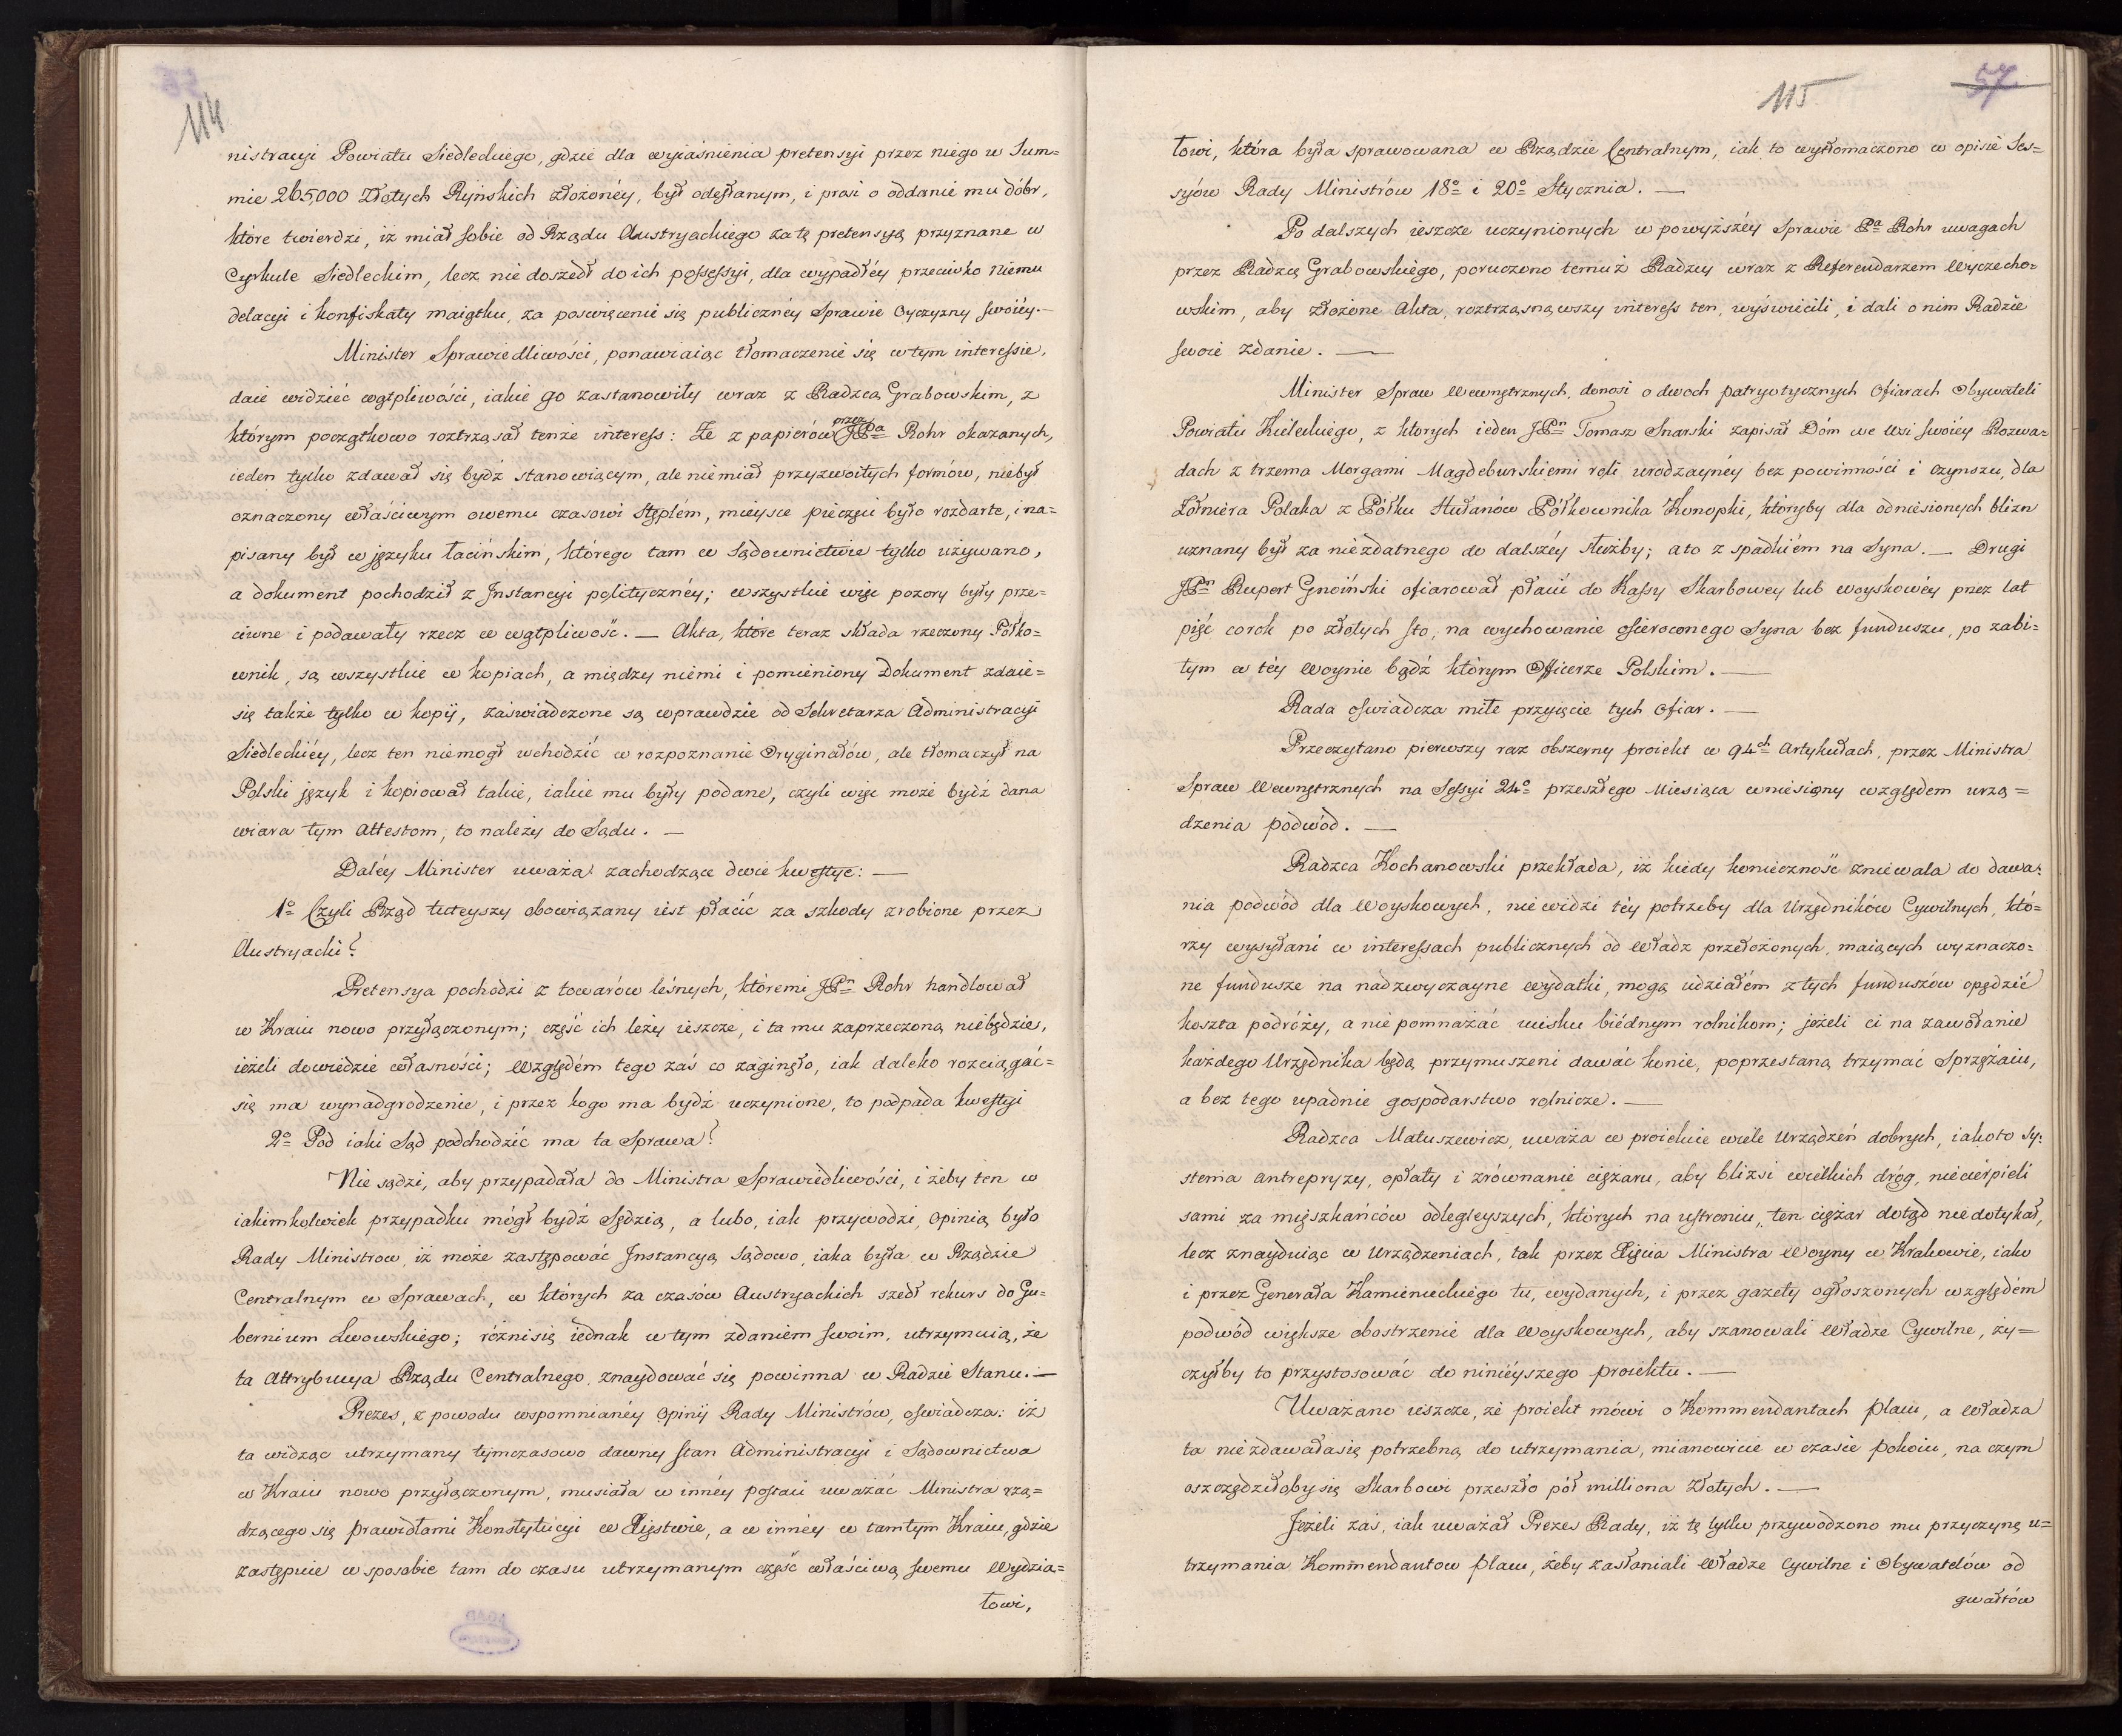 114
nistracyi Powiatu Siedleckiego, gdzie dla wyiaśnienia pretensyi przez niego w Sum=
mie 265,000 Złotych Ryńskich złożonéy, był odesłanym, i prosi o oddanie mu dóbr,
które twierdzi, iż miał sobie od Rządu Austryackiego za tę pretensyą przyznane w
Cyrkule Siedleckim, lecz nie doszedł do ich possessyi, dla wypadłéy przeciwko niemu
delacyi i konfiskaty maiątku, za poswięcenie się publicznéy Sprawie Oyczyzny swoiéy.—
Minister Sprawiedliwości, ponawiaiąc tłomaczenie się w tym interessie,
daie widzieć wątpliwości, iakie go zastanowiły wraz z Radzcą Grabowskim, z
którym początkowo roztrząsał tenże interess: Że z papierów przez JPa Rohr okazanych,
ieden tylko zdawał się bydź stanowiącym, ale niemiał przyzwoitych formów, niebył
oznaczony właściwym owemu czasowi Stęplém, mieysce pieczęci było rozdarte, i na=
pisany był w języku łacińskim, którego tam w Sądownictwie tylko używano,
a dokument pochodził z Jnstancyi politycznéy; wszystkie więc pozory były prze=
ciwne i podawały rzecz w wątpliwość. — Akta, które teraz składa rzeczony Półko=
wnik, są wszystkie w kopiach, a między niemi i pomieniony Dokument zdaie=
się także tylko w kopij, zaświadczone są wprawdzie od Sekretarza Administracyi
Siedleckiéy, lecz ten niemogł wchodzić w rozpoznanie Oryginałów, ale tłomaczył na
Polski język i kopiował takie, iakie mu były podane, czyli więc może bydź dana
wiara tym Attestom, to należy do Sądu. —
Daléy Minister uważa zachodzące dwie kwestye: —
1o Czyli Rząd tuteyszy obowiązany iest płacić za szkody zrobione przez
Austryacki?
Pretensya pochodzi z towarów leśnych, któremi JPn Rohr handlował
w Kraiu nowo przyłączonym; część ich leży ieszcze, i ta mu zaprzeczoną niebędzie,
ieżeli dowiedzie własności; Względém tego zaś co zaginęło, iak daleko rozciągać=
się ma wynadgrodzenie, i przez kogo ma bydź uczynione, to podpada kwestyi
2o Pod iaki Sąd podchodzić ma ta Sprawa?
Nie sądzi, aby przypadała do Ministra Sprawiedliwości, i żeby ten w
iakimkolwiek przypadku mógł bydź Sędzią, a lubo, iak przywodzi, Opinią było
Rady Ministrow, iż może zastępować Jnstancyą Sądowo, iaka była w Rządzie
Centralnym w Sprawach, w których za czasów Austryackich szedł rekurs do Gu=
bernium Lwowskiego; różni się iednak w tym zdaniem swoim, utrzymuiąc, że
ta Attrybucya Rządu Centralnego, znaydować się powinna w Radzie Stanu. —
Prezes, z powodu wspomnianéy Opinij Rady Ministrów, oświadcza: iż
ta widząc utrzymany tymczasowo dawny stan Administracyi i Sądownictwa
w Kraiu nowo przyłączonym, musiała w innéy postaci uważać Ministra rzą=
dzącego się prawidłami Konstytucyi w Xięstwie, a w innéy w tamtym Kraiu, gdzie
zastępuie w sposobie tam do czasu utrzymanym część właściwą swemu Wydzia=
łowi,
115
57
łowi, która była sprawowana w Rządzie Centralnym, iak to wytłomaczono w opisie Ses=
syów Rady Ministrów 18o i 20o Stycznia. —
Po dalszych ieszcze uczynionych w powyższéy Sprawie Pa Rohr uwagach
przez Radzcę Grabowskiego, poruczono temuż Radzcy wraz z Referendarzem Wyczecho=
wskim, aby złożone Akta, roztrząsnąwszy interess ten, wyświecili, i dali o nim Radzie
swoie zdanie. —
Minister Spraw Wewnętrznych, donosi o dwoch patryotycznych Ofiarach Obywateli
Powiatu Kieleckiego, z których ieden JPn Tomasz Snarski zapisał Dóm we Wsi swoiéy Rozwa=
dach z trzema Morgami Magdeburskiemi roli urodzayney bez powinności i czynszu, dla
Żołniera Polaka z Półku Hułanów Półkownika Konopki, któryby dla odniesionych blizn
uznany był za niezdatnego do dalszéy służby; a to z spadkiem na Syna. — Drugi
JPn Rupert Gnoiński ofiarował płacić do Kassy Skarbowey lub woyskowéy przez lat
pięć corok po złotych sto, na wychowanie osieroconego Syna bez funduszu, po zabi=
tym w téy Woynie bądź którym Officerze Polskim. —
Rada oświadcza miłe przyięcie tych Ofiar. —
Przeczytano pierwszy raz obszerny proiekt w 94ch Artykułach, przez Ministra
Spraw Wewnętrznych na Sessyi 24o przeszłego Miesiąca wniesiony względem urzą=
dzenia podwód. —
Radzca Kochanowski przekłada, iż kiedy konieczność zniewala do dawa=
nia podwód dla Woyskowych, nie widzi téy potrzeby dla Urzędników Cywilnych, któ=
rzy wysyłani w interessach publicznych od Władz przełożonych, maiących wyznaczo=
ne fundusze na nadzwyczayne wydatki, mogą udziałém z tych funduszów opędzić
koszta podróży, a nie pomnażać ucisku biédnym rolnikom; jeżeli ci na zawołanie
każdego Urzędnika będą przymuszeni dawać konie, poprzestaną trzymać Sprzężaiu,
a bez tego upadnie gospodarstwo rolnicze. —
Radzca Matuszewicz, uważa w proiekcie wiele Urządzeń dobrych, iakoto Sy=
stema antrepryzy, opłaty i zrównanie ciężaru, aby blizsi wielkich dróg, niecierpieli
sami za mięszkańców odległeyszych, których na ustroniu, ten ciężar dotąd niedotykał,
lecz znayduiąc w Urządzeniach, tak przez Xięcia Ministra Woyny w Krakowie, iako
i przez Generała Kamienieckiego tu, wydanych, i przez gazety ogłoszonych względém
podwód większe obostrzenie dla Woyskowych, aby szanowali Władze Cywilne, ży=
czyłby to przystosować do ninieyszego proiektu. —
Uważano ieszcze, że proiekt mówi o Kommendantach placu, a Władza
ta niezdawała się potrzebną do utrzymania, mianowicie w czasie pokoiu, na czym
oszczędziłoby się Skarbowi przeszło pół milliona Złotych. —
Jeżeli zaś, iak uważał Prezes Rady, iż tę tylko przywodzono mu przyczynę u=
trzymania Kommendantow placu, żeby zasłaniali Władze Cywilne i Obywatelów od
gwałtów